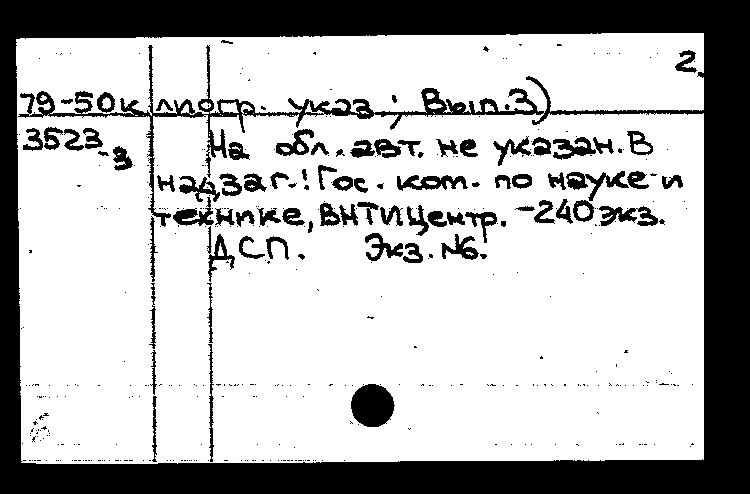 2.
79-50к лиогр. указ.; Вып.3)
3523-3 На обл. авт. не указан. В
надзаг.: Гос. ком. по науке и
технике, ВНТИЦентр. - 240 экз.
ДСП. Экз. №6.